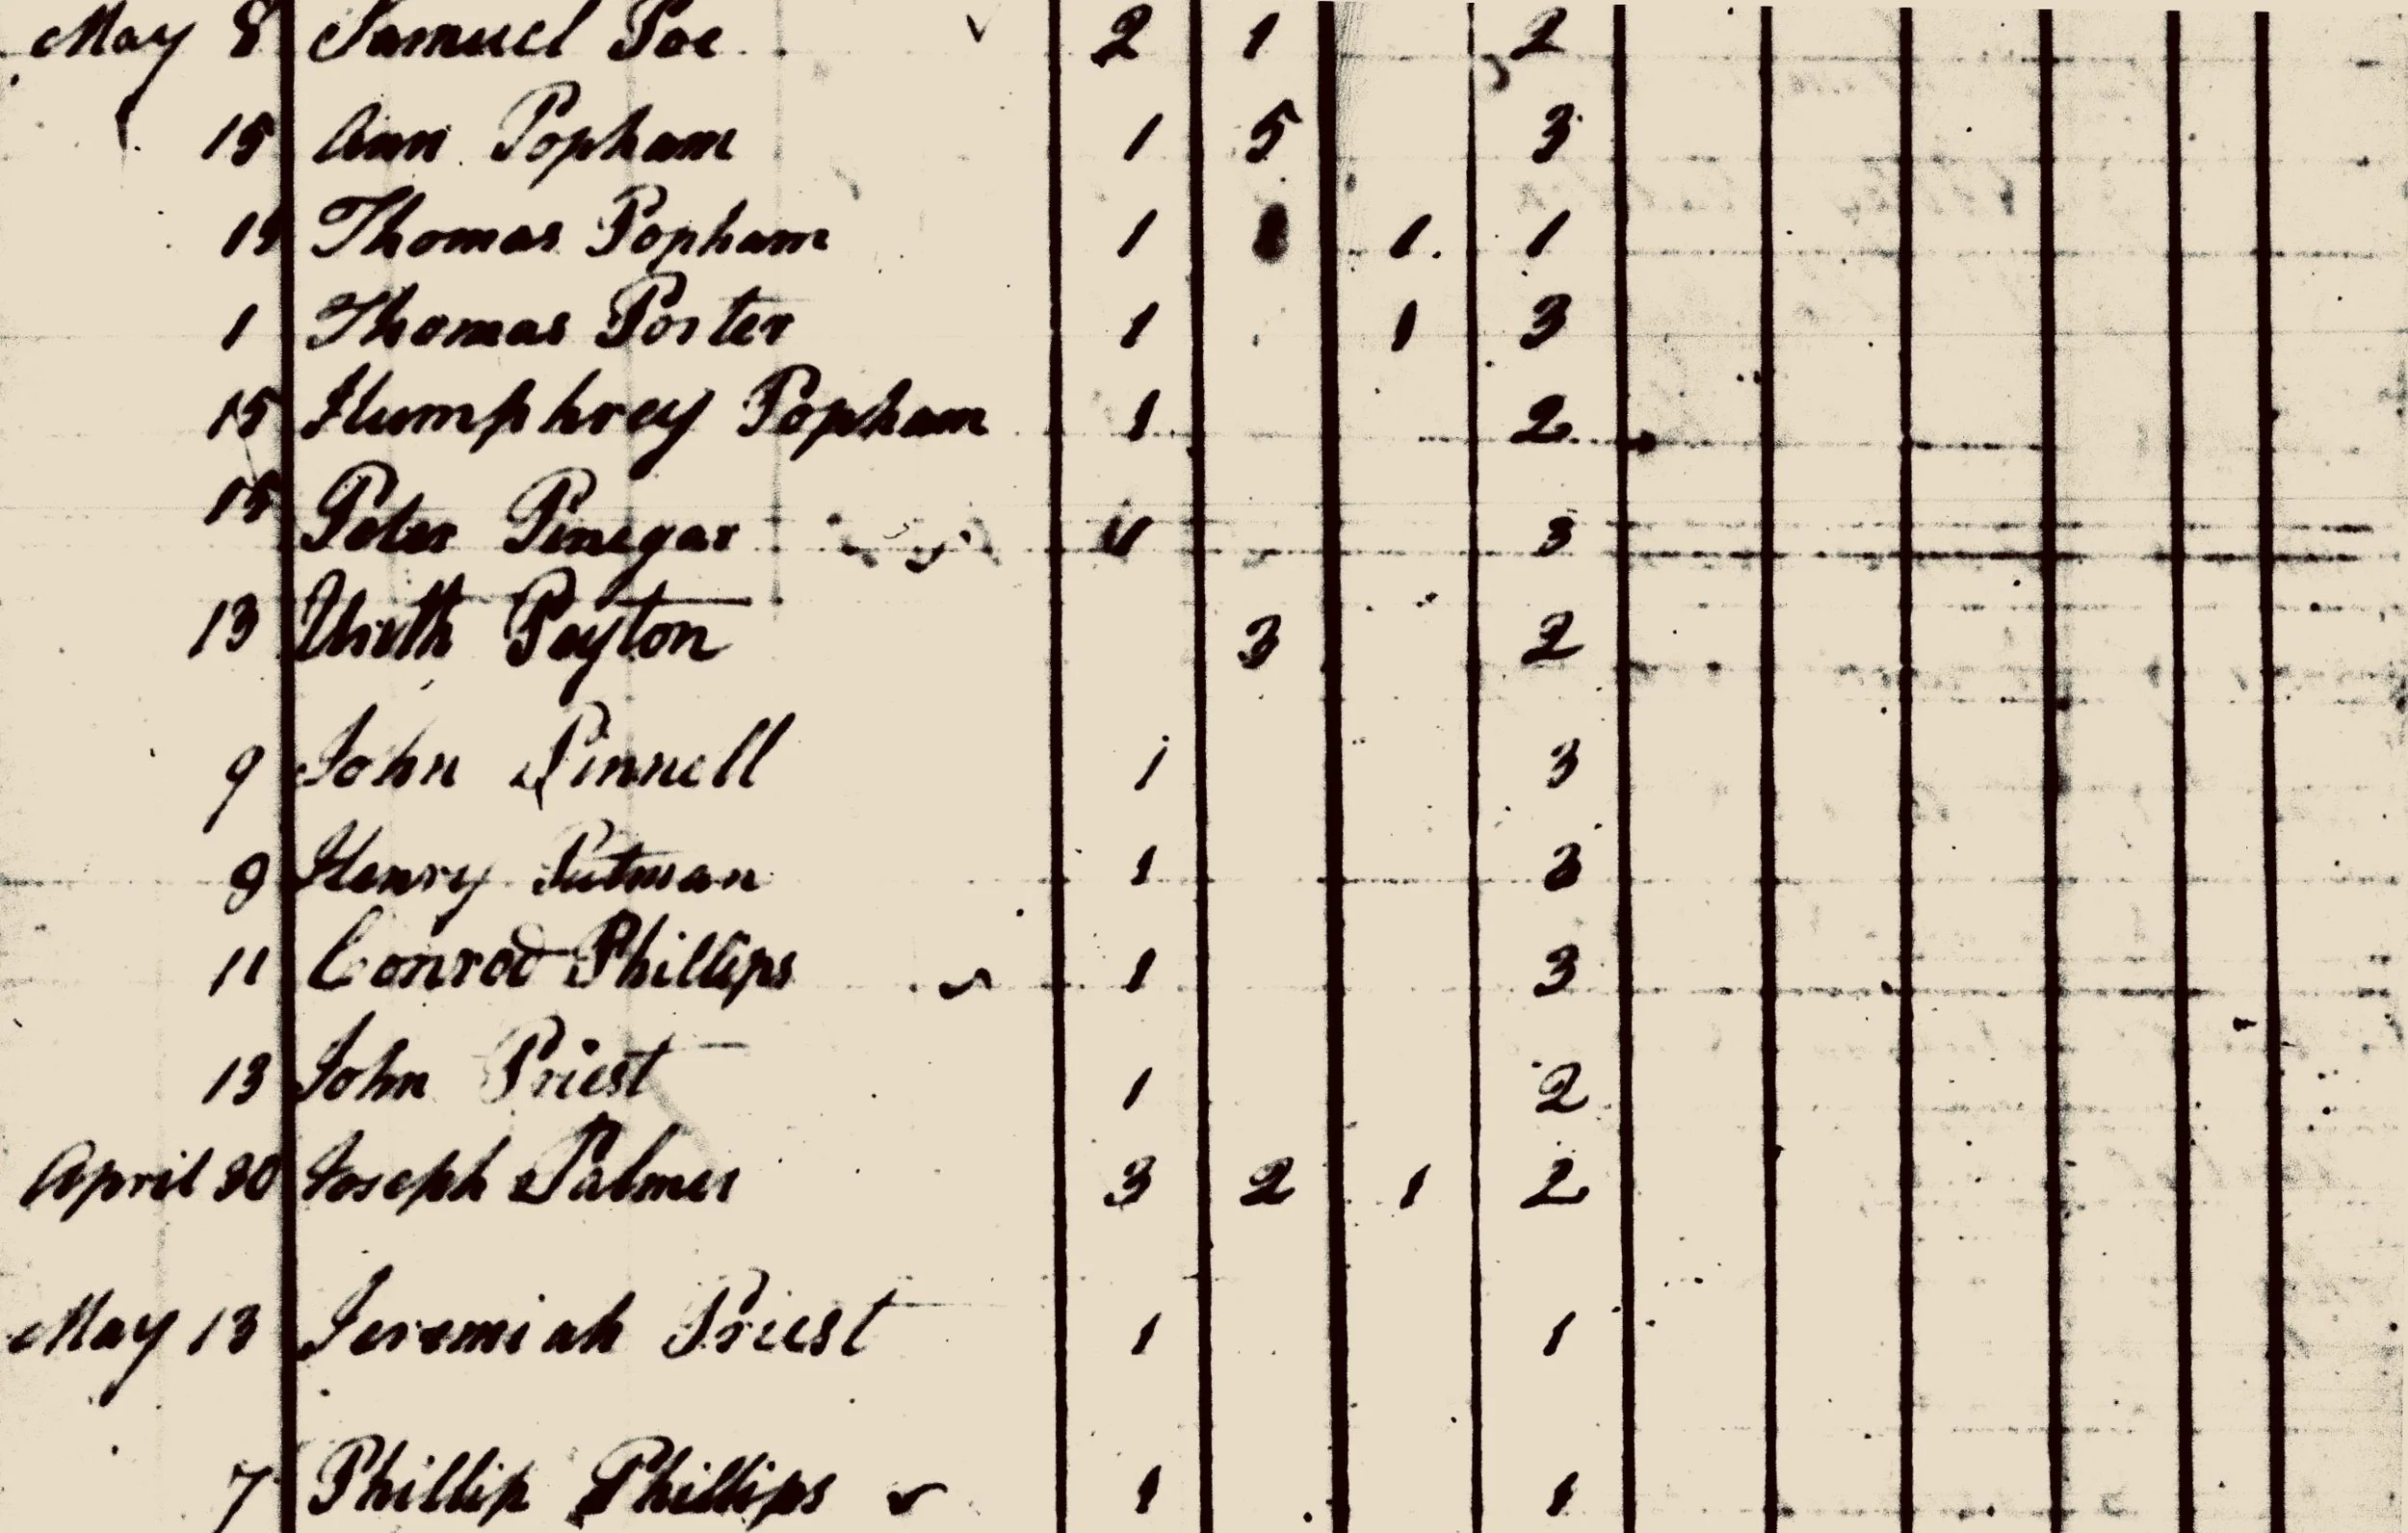 May 8 Samuel Poe 2 1 2
15 Ann Popham 1 5 3
15 Thomas Popham 1 1 1
1 Thomas Porter 1 1 3
15 Humphrey Popham 1 2
15 Peter Pinegar 3
13 Peyton 3 2
9 John Pinnell 1 3
9 Henry Putman 1
11 Conrod Phillips 1 3
13 John Priest 1 2
April 30 Joseph Palmer 3 2 1 2
May 13 Jeremiah Priest 1 1
7 Phillip Phillips 1 1